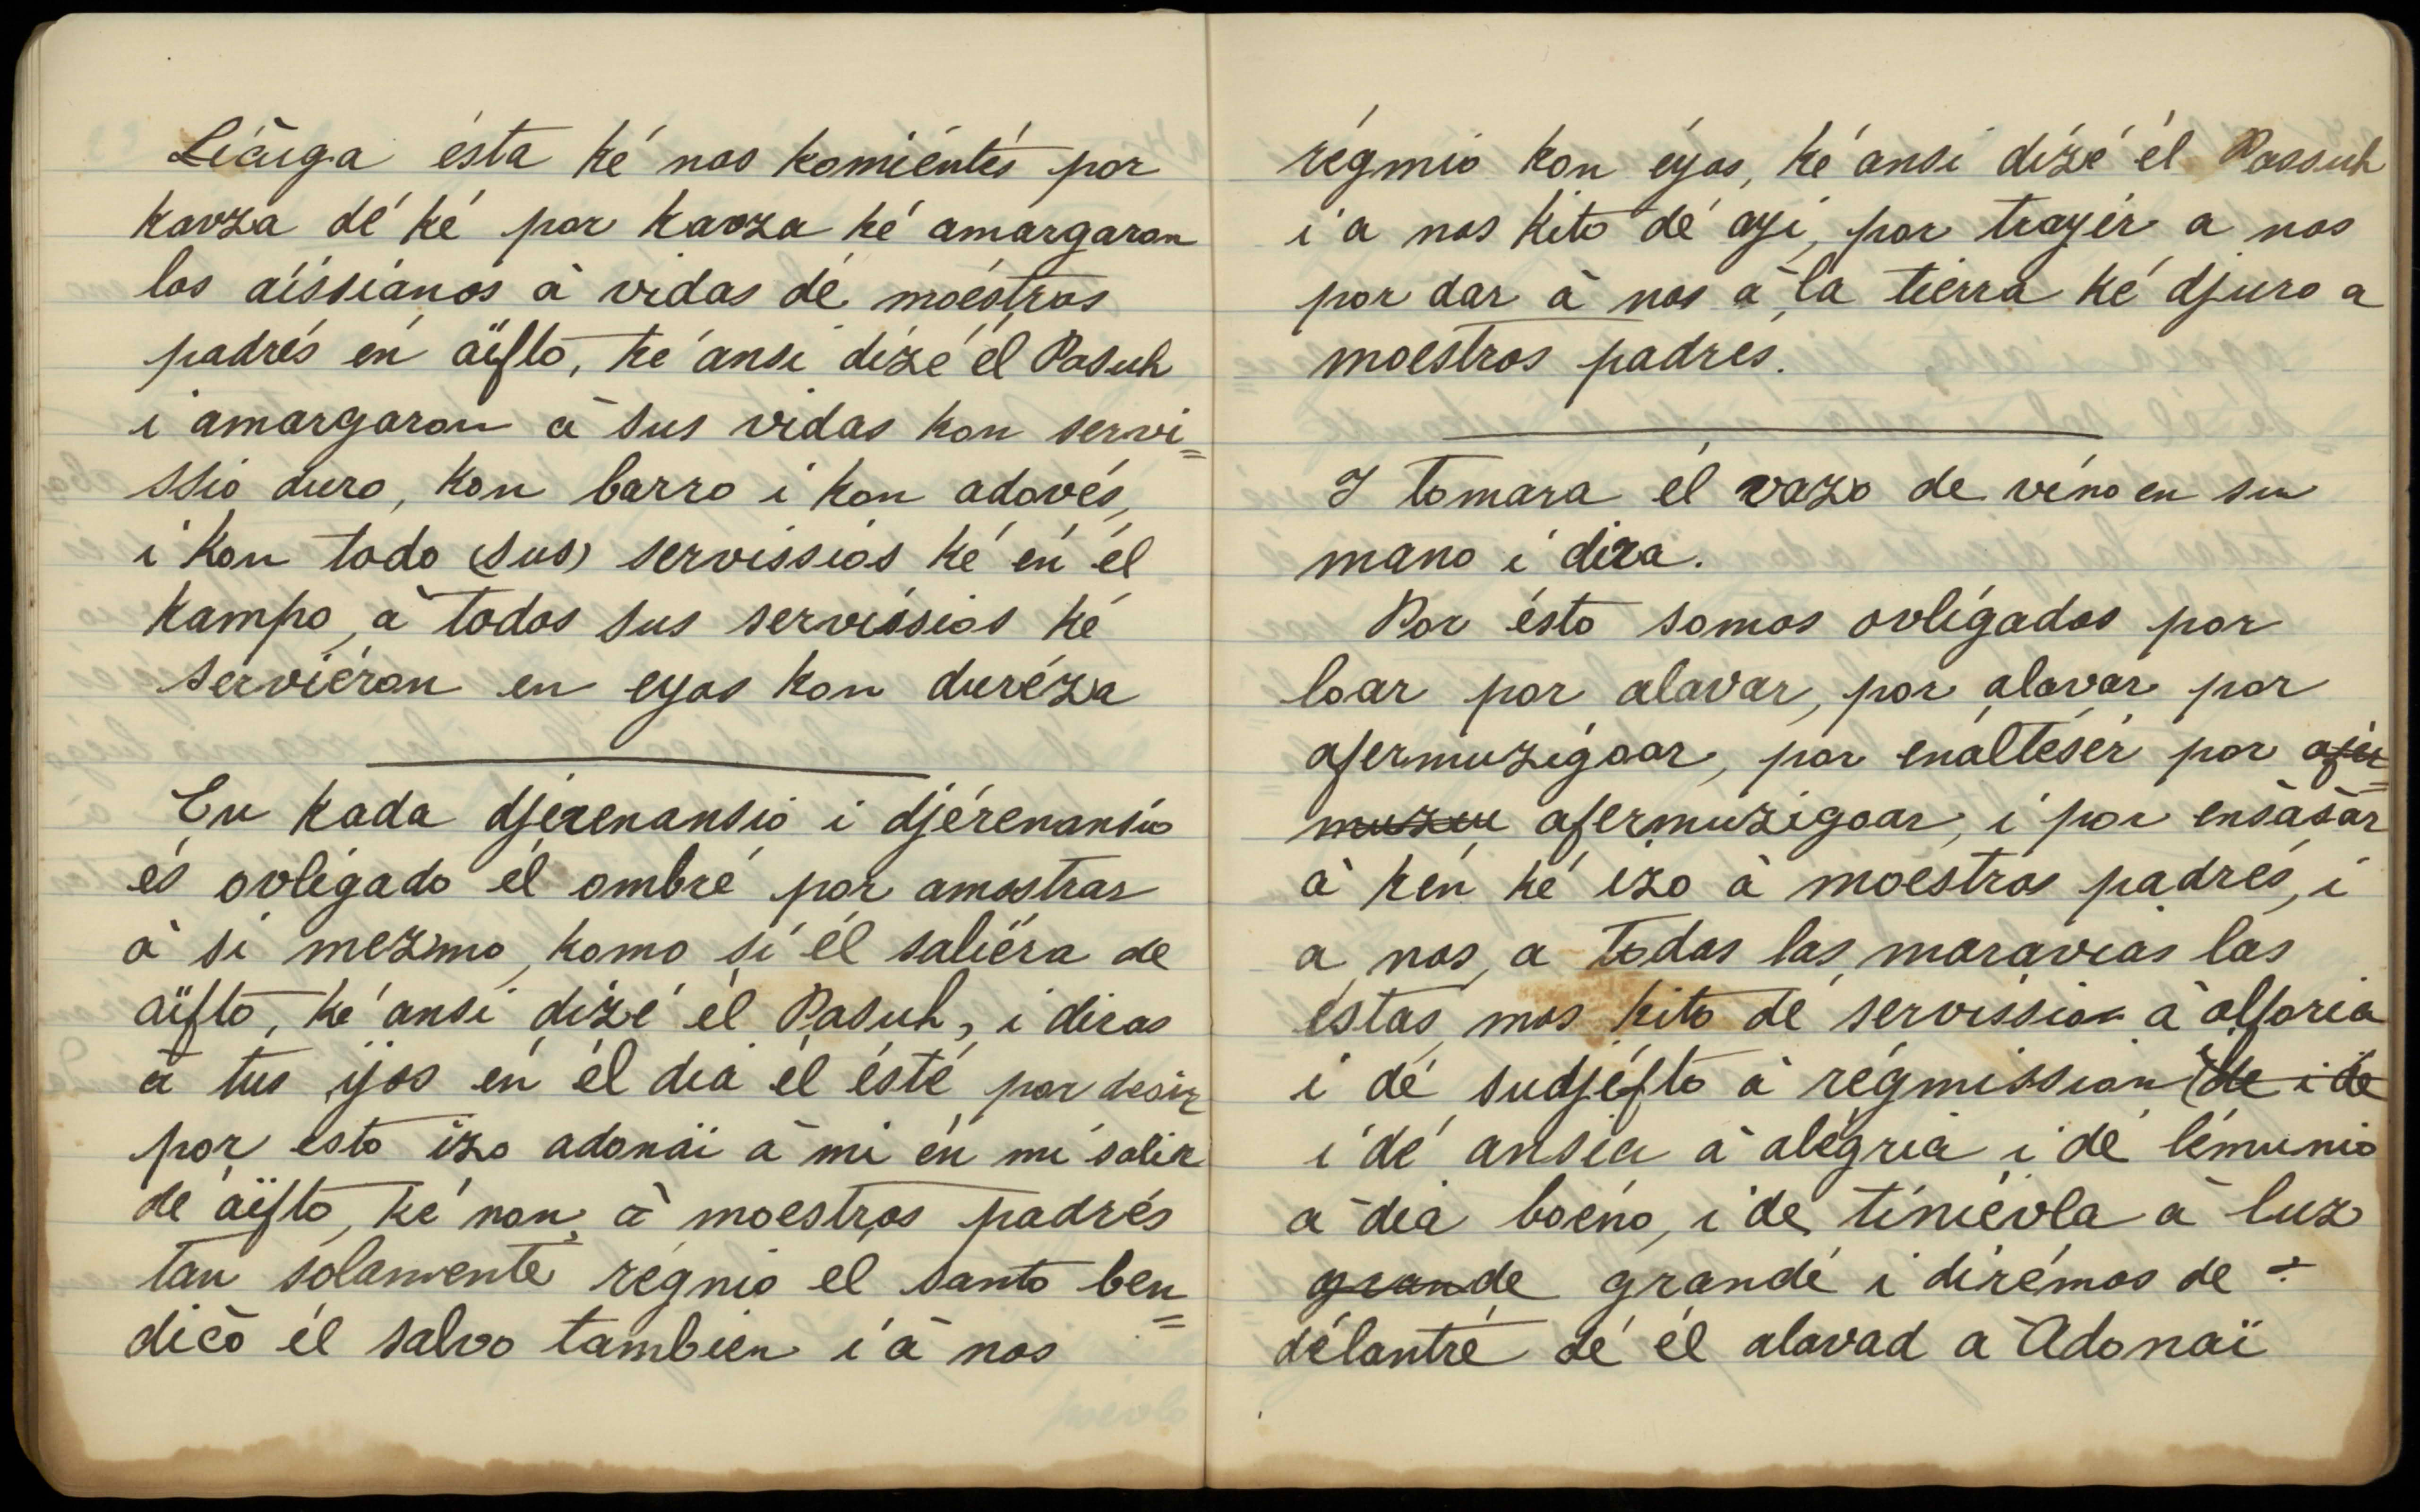 Léċuga ésta ké nos komiéntés por
kavza dé ké por kavza ké amargaron
los aíssiános à vidas dé moéstros
padrés én aïfto, ké ansi dizé él Pasuk
i amargaron à sus vidas kon servi=
ssio duro, kon barro i kon adovés,
i kon todo (sus) servissiós ké én él
kampo, à todos sus servissios ké
serviéron en eyos kon duréza
En kada djerenansió i djérenansio
és ovligado él ombré por amostrar
à si mezmo, komo si él saliéra de
aïfto, ké ansi dizé él Pasuh, i diras
à tus ijos én él dia él ésté por desir
por esto izo adonaï à mi én mi salir
de aïfto, ké non à moestros padrés
tan solamente régnio el santo ben=
dicò él salvo tambien i à nos
régmio kon éyos, ké ansi dizé él Passuh
i a nos kito dé ayi, por trayér a nos
por dar à nos à la tierra ké djuro a
moéstros padrés.
I tomara él vazo de vino en su
mano i dira.
Por ésto somos ovligados por
loar por alavar, por alavar por
afermuzigoar, por enaltésér por afer=
muzeu afermuzigoar, i por ensàsàr
à kén ké izo à moéstros padrés, i
a nos, a todas las maravias las
éstas, mos kito dé servission à alforia
i dé sudjéfto à régmission (de i de
i dé ansia à alégria i dé lémunio
a dia boéno, i de tiniévla à luz
grande grandé i dirémos de ÷
délantré dé él alavad a Adonaï